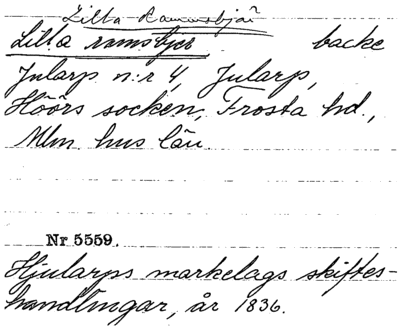 Lilla Rammsbjär
Lilla ramsbjer backe
Jularp n:r 4, Jularp,
Höörs socken, Frosta hd.,
Mlm. hus län.
Nr 5559.
Hjularps markelags skiftes-
handlingar, år 1836.